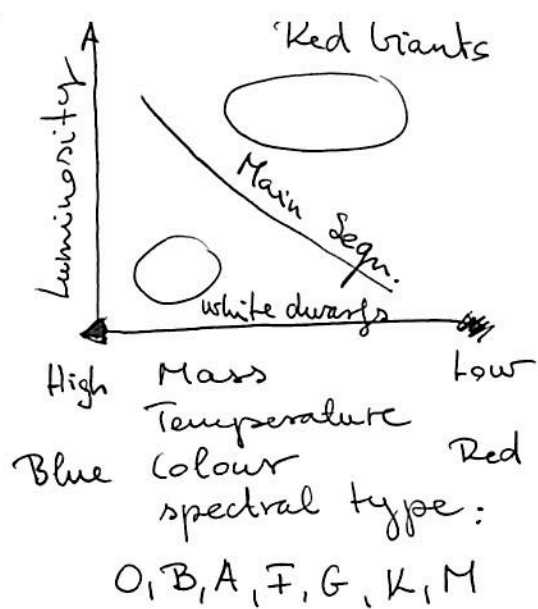 Red Giants
Luminosity
Main Sequ.
white dwarfs
High Mass Low
Temperature
Blue Colour Red
spectral type:
O, B, A, F, G, K, M